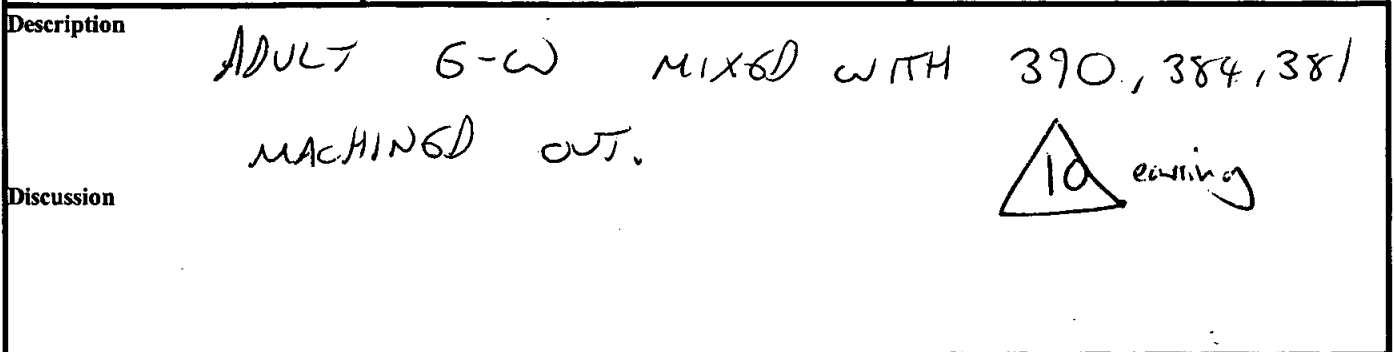 Description
ADULT E-W MIXED WITH 390, 384, 381
MACHINED OUT.
10 earring
Discussion